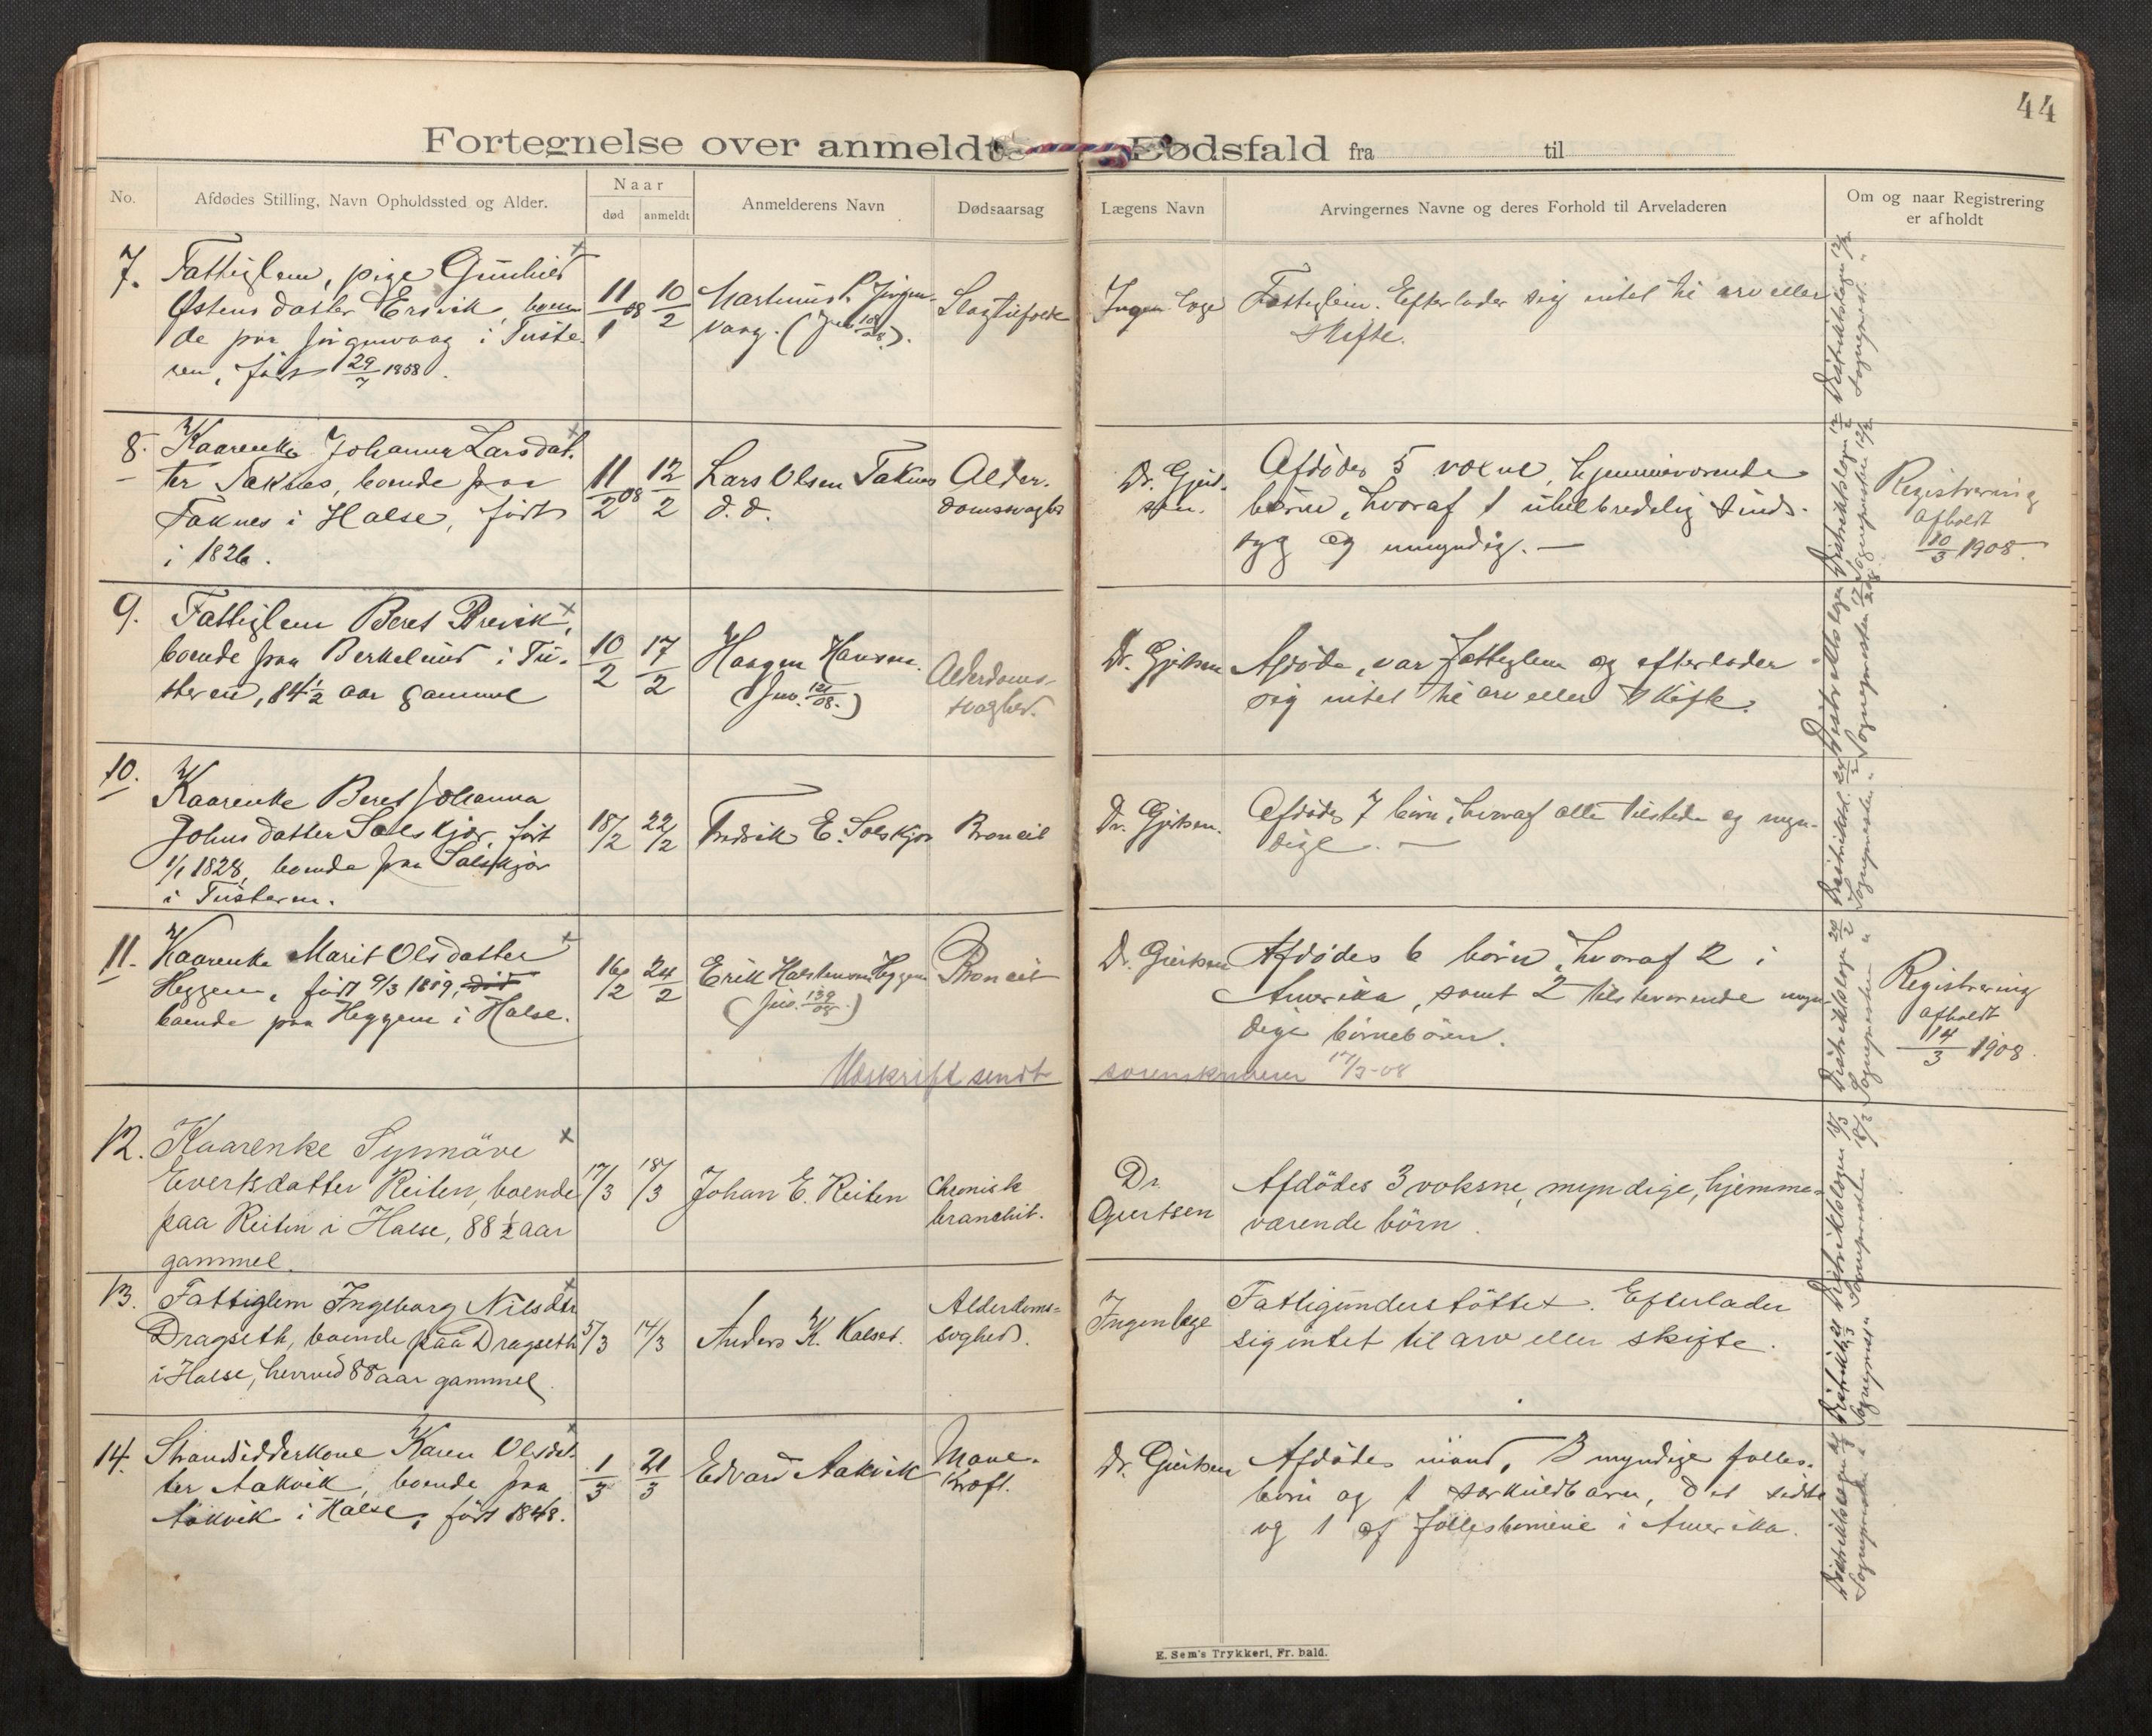 44
Fortegnelse over anmeldte Dødsfald fra til
No.
Afdødes Stilling, Navn Opholdssted og Alder.
Naar
død
anmeldt
Anmelderens Navn
Dødsaarsag
Lægens Navn
Arvingernes Navne og deres Forhold til Arveladeren
Om og naar Registrering
er afholdt
7.
Fattiglem, pige Gunhild
Østensdatter Ersvik, boen
de paa i Tuste
ren, født 29/7 1858.
11/1 08
10/2
Martinus P. Jørgen-
vaag.
Ingen læge
Fattiglem. Efterlader sig intet til arv eller
skifte.
8.
Kaarenke Johanna Larsdat.
ter Taknes, boende paa
Taknes i Halse, født
i 1826.
11/2 08
12/2
Lars Olsen Taknes
d. d.
Alder.
domssvaghed
Dr. Gjert.
sen.
Afdødes 5 voxne, hjemmeværende
børn, hvoraf 1 uhelbredelig sinds-
syg og umyndig. —
Registrering
afholdt
10/3 1908.
9.
Fattiglem Beret Brevik,
boende paa Berkelund i Tu-
steren, 84½ aar gammel
10/2
17/2
Haagen Hansen.
(Jnv. 121/08.)
Alderdoms-
svaghed.
Dr. Gjertsen
Afdøde, var fattiglem og efterlader
sig intet til arv eller skifte.
10.
Kaarenke Beret Johanna
Johnsdatter Solskjør, født
1/1 1828, boende paa Solskjør
i Tusteren.
18/2
22/2
Fredrik E. Solskjør
Broncit
Dr. Gjertsen.
Afdødes 7 børn, hvoraf alle tilstede og myn-
dige. —
11.
Kaarenke Marit Olsdatter
Heggem, født 9/3 1819,
boende paa Heggem i Halse.
16/2
24/2
Erik Halstensen Heggem
(Jnv. 139/08.)
Broncit
Dr. Gjertsen
Afdødes 6 børn, hvoraf 2 i
Amerika, samt 2 tilsteværende myn
dige børnebørn.
Registrering
afholdt
14/3 1908.
Udskrift sendt sorenskriveren 17/3-08
12.
Kaarenke Synnöve
Evertsdatter Reiten, boende
paa Reiten i Halse, 88½ aar
gammel.
17/3
18/3
Johan E. Reiten
Chronisk
branchit.
Dr.
Gjertsen
Afdödes 3 voksne, myndige, hjemme=
værende börn.
13.
Fattiglem Ingeborg Nilsdtr
Dragseth, boende paa Dragseth
i Halse, henved 88 aar gammel.
5/3
14/3
Anders K. Kalset.
Alderdoms=
svaghed.
Ingen læge
Fattigunderstöttet. Efterlader
sig intet til arv eller skifte.
14.
Strandsidderkone Karen Olsdat-
ter Aakvik, boende paa
Aakvik i Halse, født 1848.
1/3
21/3
Edvard Aakvik
Mave-
kræft.
Dr. Gjertsen
Afdödes mand, 3 myndige fælles.
børn og 1 særkuldbarn, det sidste
og 1 af fællesbørnene i Amerika.
E. Sem's Trykkeri, Fr. hald.